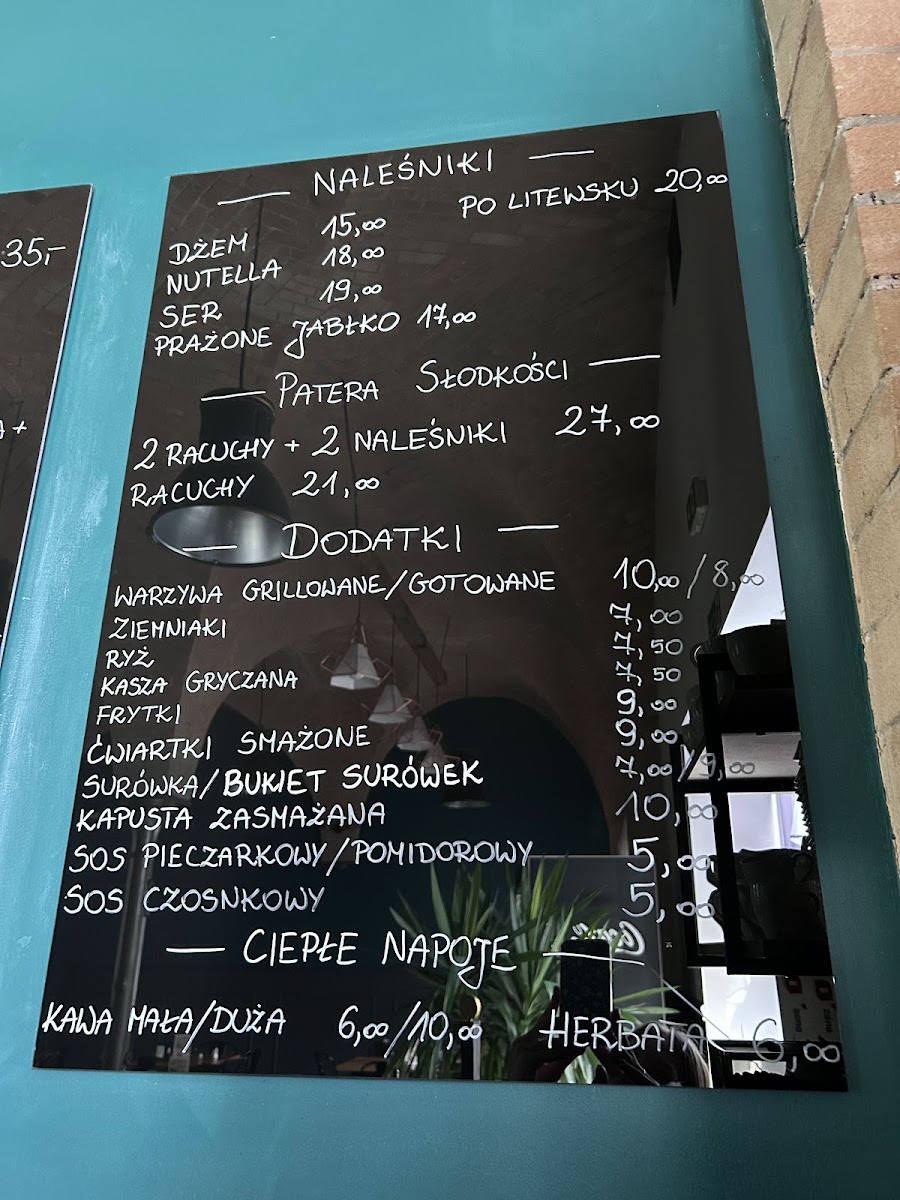 35,-
A+
NALEŚNIKI
PO LITEWSKU 20,00
DŻEM 15,00
NUTELLA 18,00
SER 19,00
PRAŻONE JABŁKO 17,00
PATERA SŁODKOŚCI
2 RACUCHY + 2 NALEŚNIKI 27,00
RACUCHY 21,00
DODATKI
WARZYWA GRILLOWANE/GOTOWANE 10,00/8,00
ZIEMNIAKI 7,00
RYŻ 7,50
KASZA GRYCZANA 7,50
FRYTKI 9,00
ĆWIARTKI SMAŻONE 9,00
SURÓWKA/BUKIET SURÓWEK 7,00/9,00
KAPUSTA ZASMAŻANA 10,00
SOS PIECZARKOWY/POMIDOROWY 5,00
SOS CZOSNKOWY 5,00
CIEPŁE NAPOJE
KAWA MAŁA/DUŻA 6,00/10,00 HERBATA 6,00